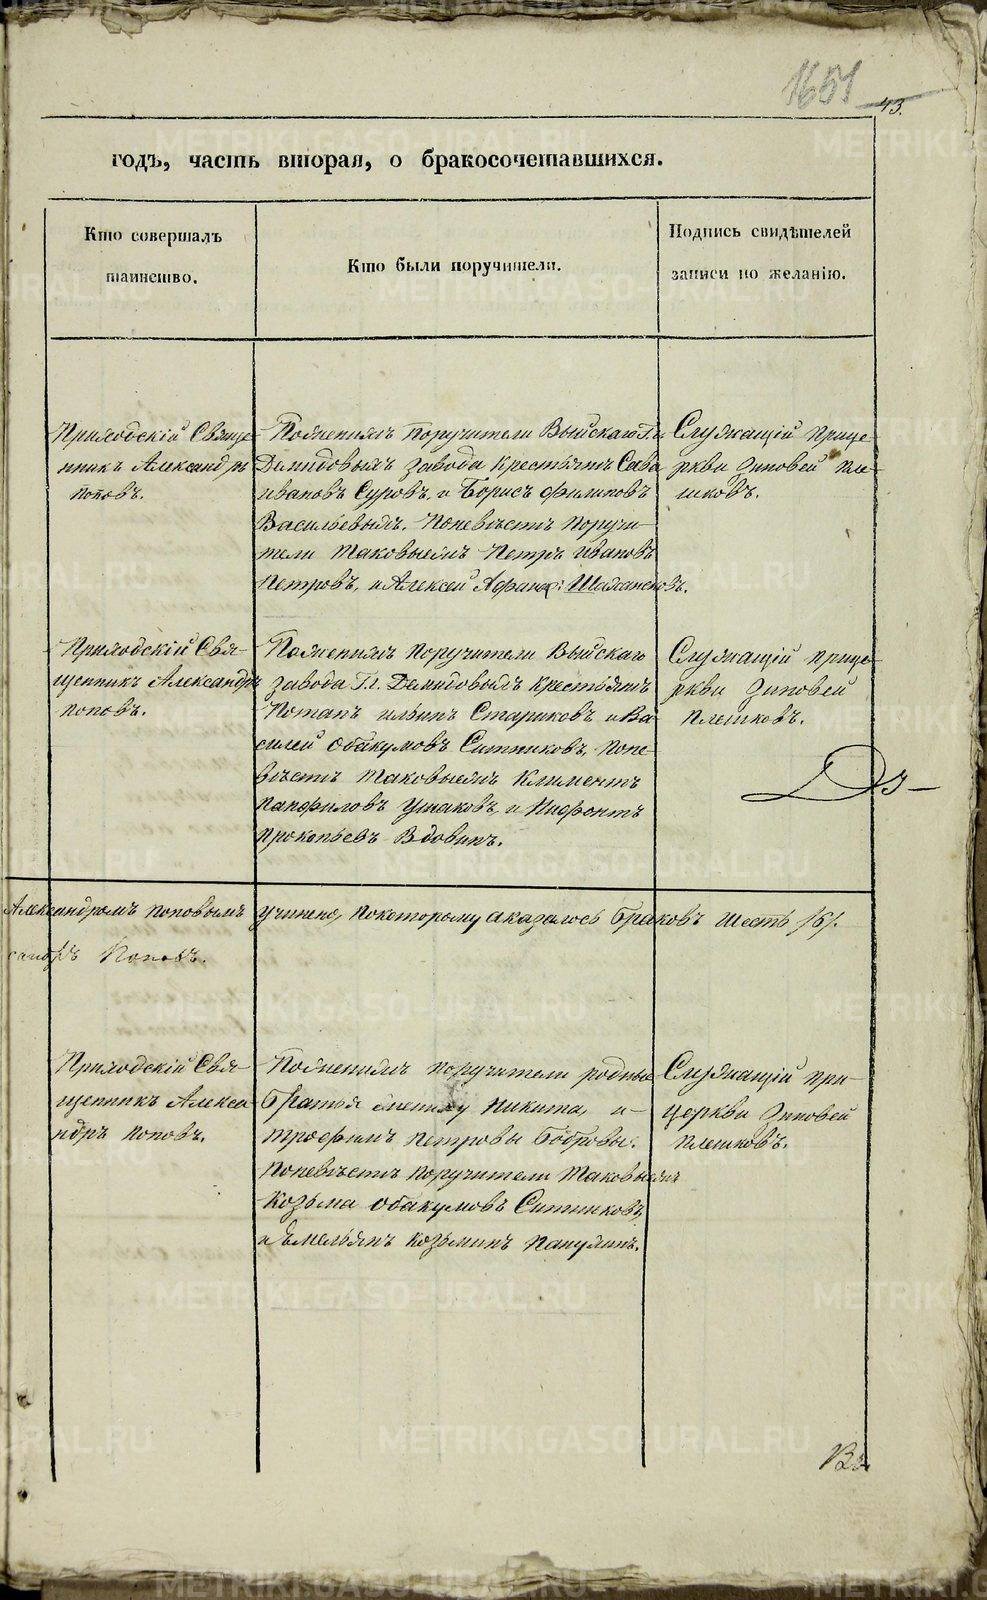 1651
43.
годъ, часть вторая, о бракосочетавшихся.
Кто совершалъ
таинство.
Кто были поручители.
Подпись свидѣтелей
записи по желанію.
Приходскій Свяще-
нникъ Александръ
Поповъ.
По женихѣ Поручители Выйскаго Гг.
Демидовыхъ завода крестьянъ Сава
Ивановъ Суровъ, и Борисъ Филиповъ
Васильевыхъ. По невѣстѣ Поручи-
тели таковыежъ Петръ Ивановъ
Петровъ, и Алексей Афанас:
Служащій при це-
ркви Зиновей Пле-
шковъ.
Приходскій Свя-
щенникъ Александръ
Поповъ.
По женихѣ Поручители Выйскаго
завода Гг. Демидовыхъ крестьянъ
Потапъ Ильинъ Стариковъ и Ва-
силей Обакумовъ Ситниковъ, по не-
вѣстѣ таковыежъ Климентъ
Панфиловъ Ушаковъ, и Нифонтъ
Прокопьевъ Вдовинъ.
Служащій при це-
ркви Зиновей
Плешковъ.
Александромъ Поповымъ учинено, по которому оказалось браковъ шесть /6/.
сандръ Поповъ.
Приходскій Свя-
щенникъ Алекса-
ндръ Поповъ.
По женихѣ поручители родные
братья жениху Никита, и
Трофимъ Петровы Бобровы.
По невѣстѣ поручители таковыежъ
Козьма Обакумовъ Ситниковъ,
и Емельянъ Козьминъ
Служащій при
церкви Зиновей
Плешковъ.
METRIKI.GASO-URAL.RU